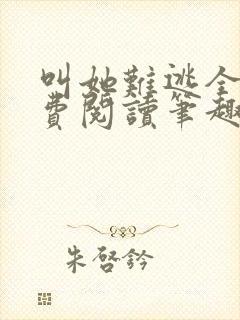 叫她難逃全
費閱讀筆趣
朱啓鈐